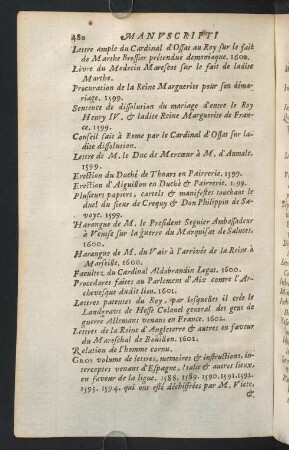 480 MANVSCRIPTI
Lettre ample du Cardinal d'Ossat au Roy sur le fait
de Marthe Brossier prétendue demoniaque, 1600.
Livre du Medecin Marescot sur le fait de ladite
Marthe.
Procuration de la Reine Marguerite pour son déma-
riage, 1599.
Sentence de dissolution du mariage d'entre le Roy
Henry IV. & ladite Reine Marguerite de Fran-
ce. 1599.
Conseil fait à Rome par le Cardinal d'Ossat sur la-
dite dissolution.
Lettre de M. le Duc de Mercœur à M. d'Aumale.
1599.
Erection du Duché de Thoars en Pairrerie, 1599.
Erection d'Aiguillon en Duché & Pairrerie, 1599.
Plusieurs papiers, cartels & manifestes touchant le
duel du sieur de Crequy & Don Philippin de Sa-
voye. 1599.
Harangue de M. le President Seguier Ambassadeur
à Venise sur la guerre du Marquisat de Saluces.
1600.
Harangue de M. du Vair à l'arrivée de la Reine à
Marseille, 1600.
Facultez du Cardinal Aldobrandin Legat. 1600.
Procedures faites au Parlement d'Aix contre l'Ar-
chevesque audit lieu, 1601.
Lettres patentes du Roy, par lesquelles il crée le
Landgrave de Hesse Colonel general des gens de
guerre Allemans venans en France. 1602.
Lettres de la Reine d'Angleterre & autres en faveur
du Mareschal de Boüillon. 1602.
Relation de l'homme cornu.
GROS volume de lettres, memoires & instructions, in-
terceptes venant d'Espagne, Italie & autres lieux,
en faveur de la ligue, 1588. 1589. 1590. 1591. 1592.
1593. 94. qui ont esté déchiffrées par M. Viete,
&